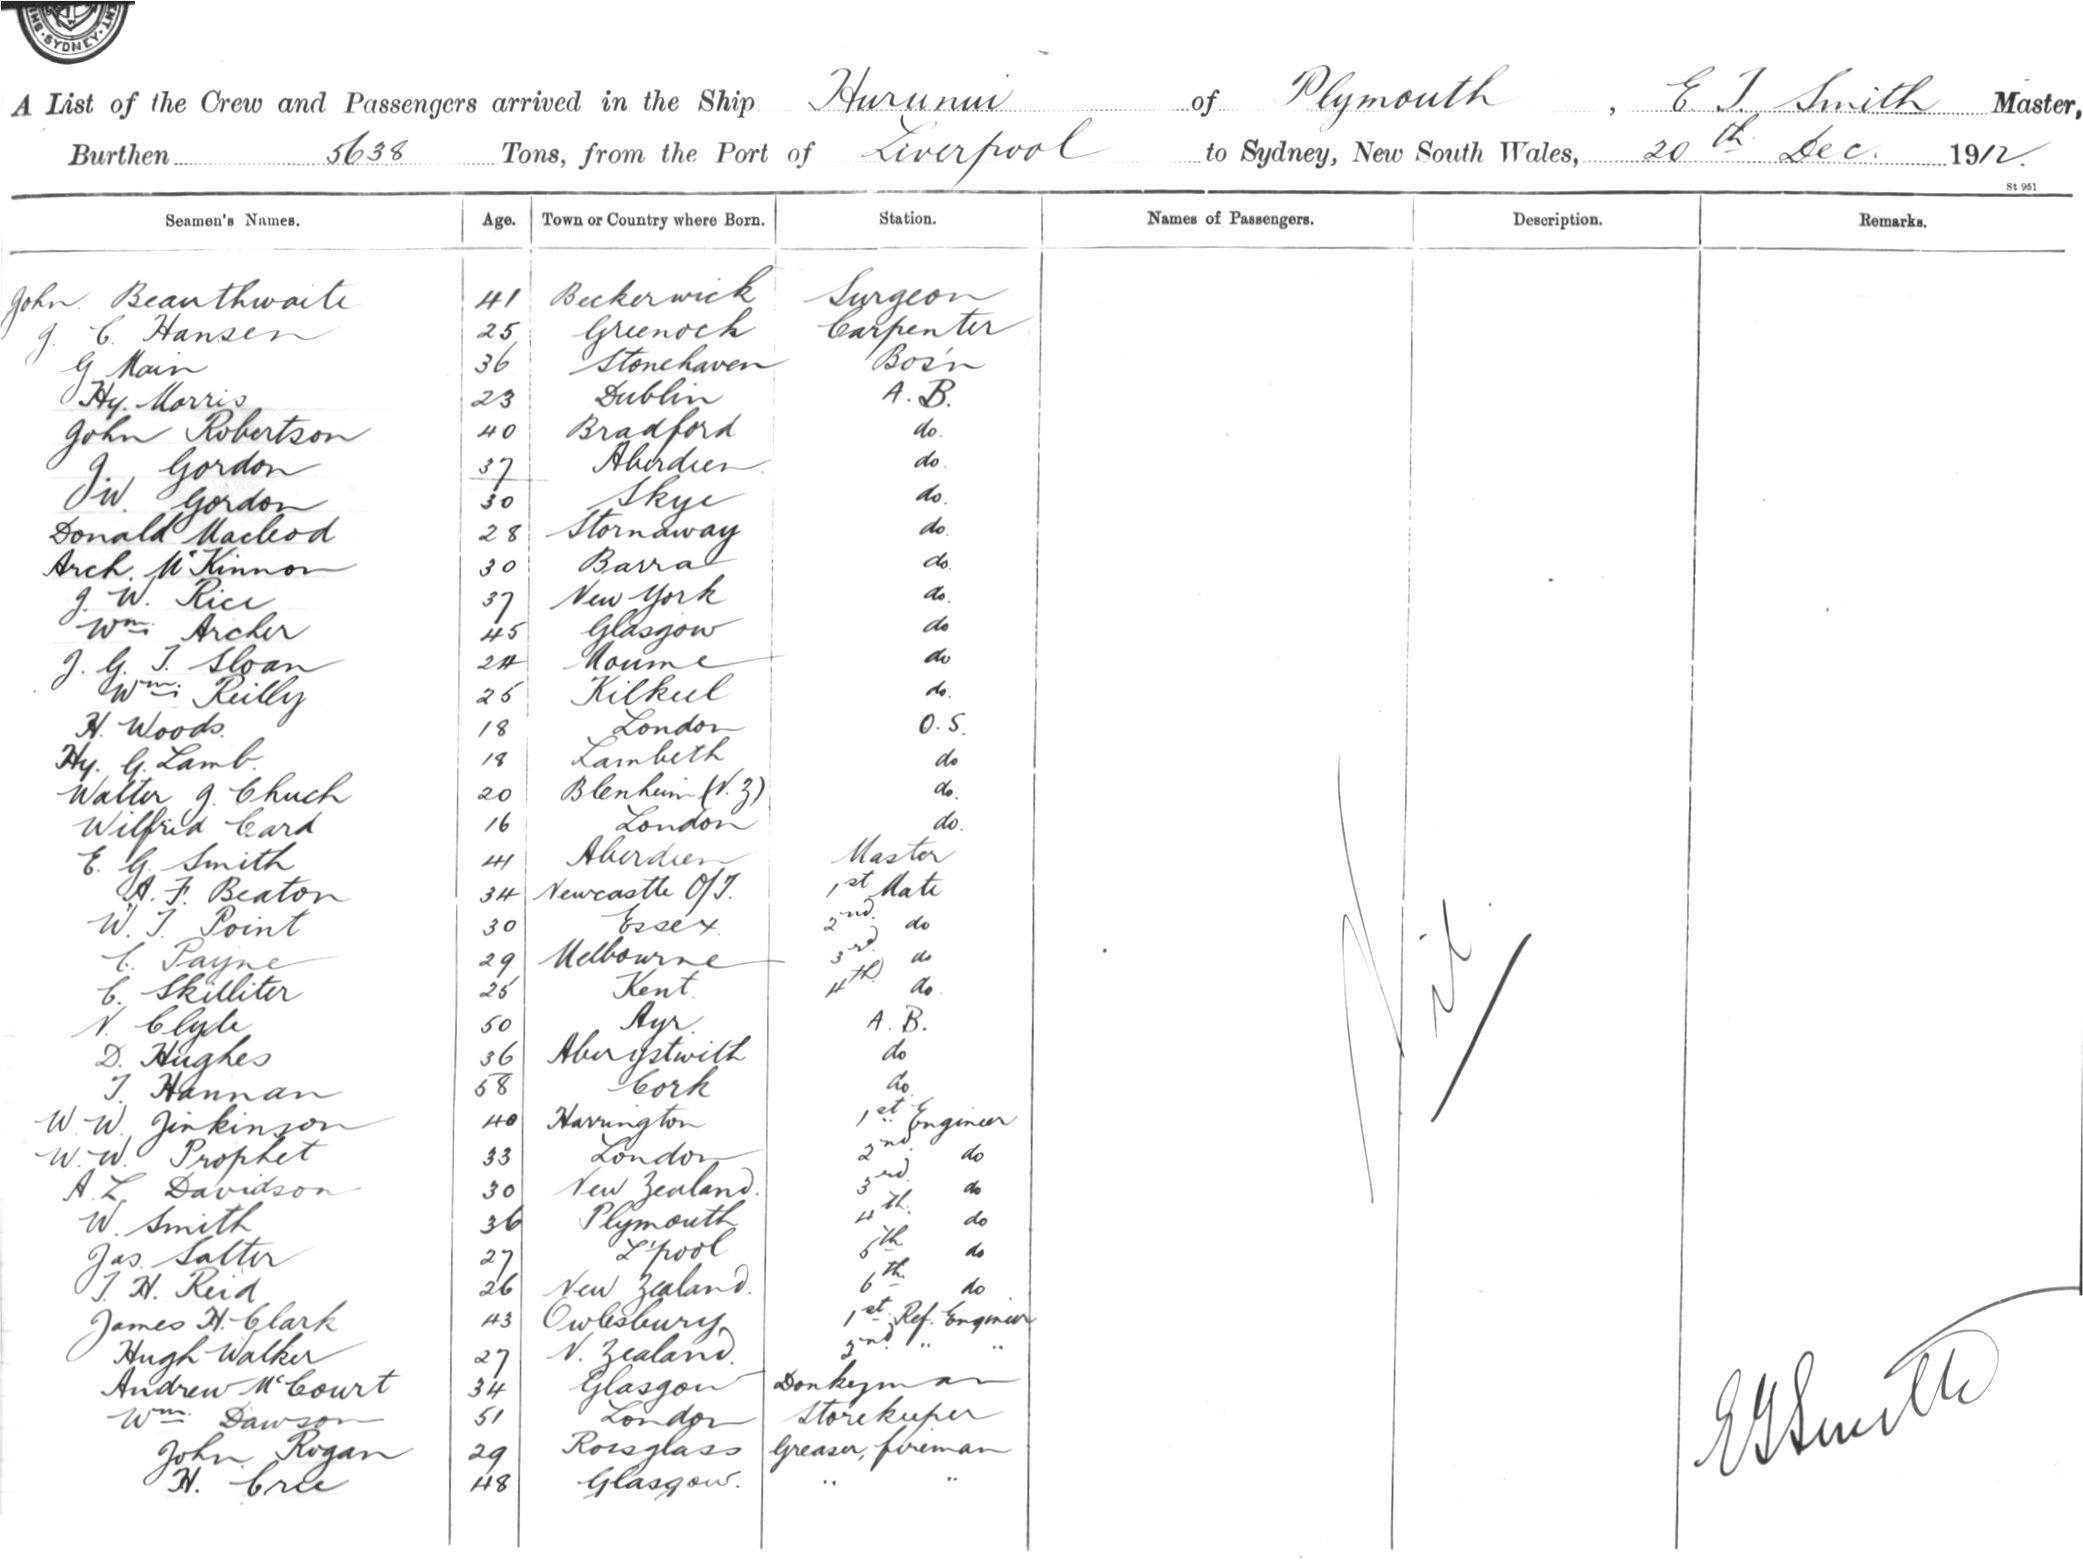 SYDNEY
A List of the Crew and Passengers arrived in the Ship Hurunui of Plymouth, E. T. Smith Master,
Burthen 5638 Tons, from the Port of Liverpool to Sydney, New South Wales, 20th Dec. 1912.
St 951
Seamen's Names. Age. Town or Country where Born. Station. Names of Passengers. Description. Remarks.
John Beauthwaite 41 Beckerwick Surgeon
J. C. Hansen 25 Greenock Carpenter
G Main 36 Stonehaven Bos'n
Hy. Morris 23 Dublin A. B.
John Robertson 40 Bradford do.
J. Gordon 37 Aberdeen do.
W. Gordon 30 Skye do.
Donald Macleod 28 Stornaway do.
Arch. McKinnon 30 Barra do.
J. W. Rice 37 New York do.
Wm. Archer 45 Glasgow do
J. G. T. Sloan 24 Mourne do
Wm. Reilly 25 Kilkeel do.
H. Woods. 18 London O. S.
Hy. G. Lamb. 18 Lambeth do
Walter J. Chuck 20 Blenheim (N. Z) do.
Wilfrid Card 16 London do.
E. G. Smith 41 Aberdeen Master
A. F. Beaton 34 Newcastle O/T. 1st Mate
W. T. Point 30 Essex. 2nd. do
C. Payne 29 Melbourne 3rd. do
C. Skilliter 25 Kent. 4th do.
N. Clyde 50 Ayr. A. B.
D. Hughes 36 Aberystwith do
T. Hannan 58 Cork do.
W. W. Jinkinson 40 Harrington 1st Engineer
W. W. Prophet 33 London 2nd. do
A. L. Davidson 30 New Zealand. 3rd. do
W. Smith 36 Plymouth 4th. do
Jas. Salter 27 L'pool 5th do
T. H. Reid 26 New Zealand. 6th. do
James H. Clark 43 Owlesbury 1st. Ref. Engineer
Hugh Walker 27 N. Zealand. 2nd. " "
Andrew McCourt 34 Glasgow Donkeyman
Wm. Dawson 51 London Storekeeper
John Rogan 29 Rossglass Greaser, fireman
H. Cree 48 Glasgow. " "
Nil
E G Smith